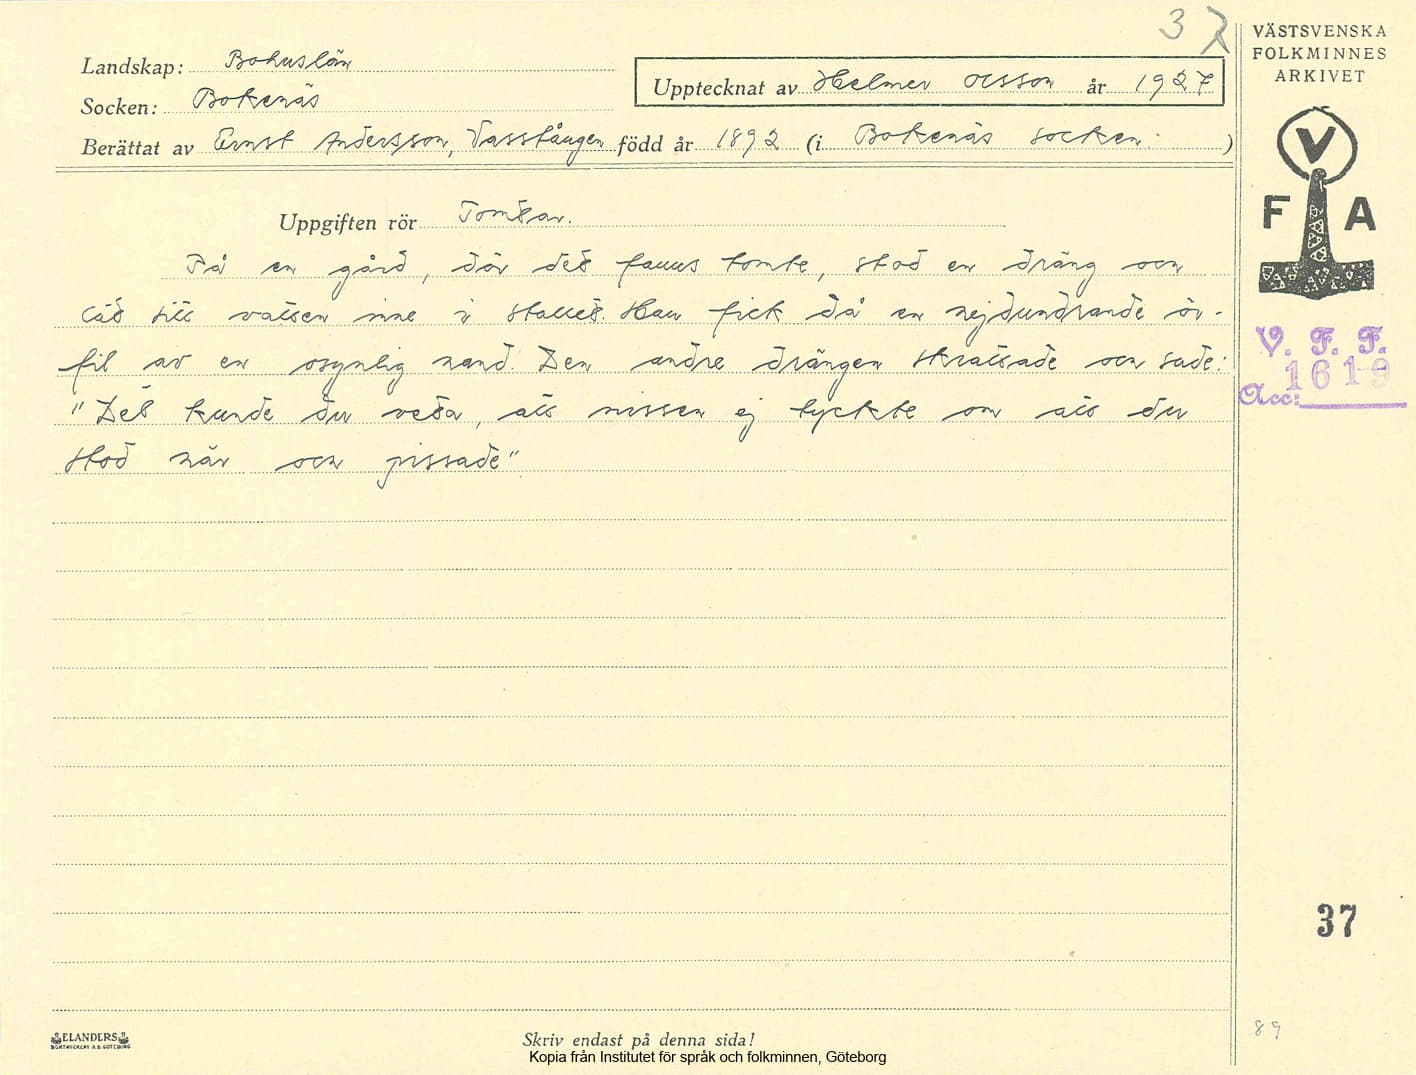 3 2
VÄSTSVENSKA
FOLKMINNES
ARKIVET
Landskap: Bohuslän
Upptecknat av Helmer Olsson år 1927
Socken: Bokenäs
Berättat av Ernst Andersson, Vasstången född år 1892 (i Bokenäs socken. )
V
F A
Uppgiften rör Tomtar.
På en gård, där det fanns tomte, stod en dräng och
lät till vattnet inne i stallet. Han fick då en hejdundrande ör-
fil av en osynlig hand. Den andre drängen skrattade och sade:
"Det kunde du veta, att nissen ej tyckte om att du
stod här och pissade".
V. F. F.
1619
Acc:
37
89
ELANDERS
BOKTRYCKERI A.B. GÖTEBORG
Skriv endast på denna sida!
Kopia från Institutet för språk och folkminnen, Göteborg